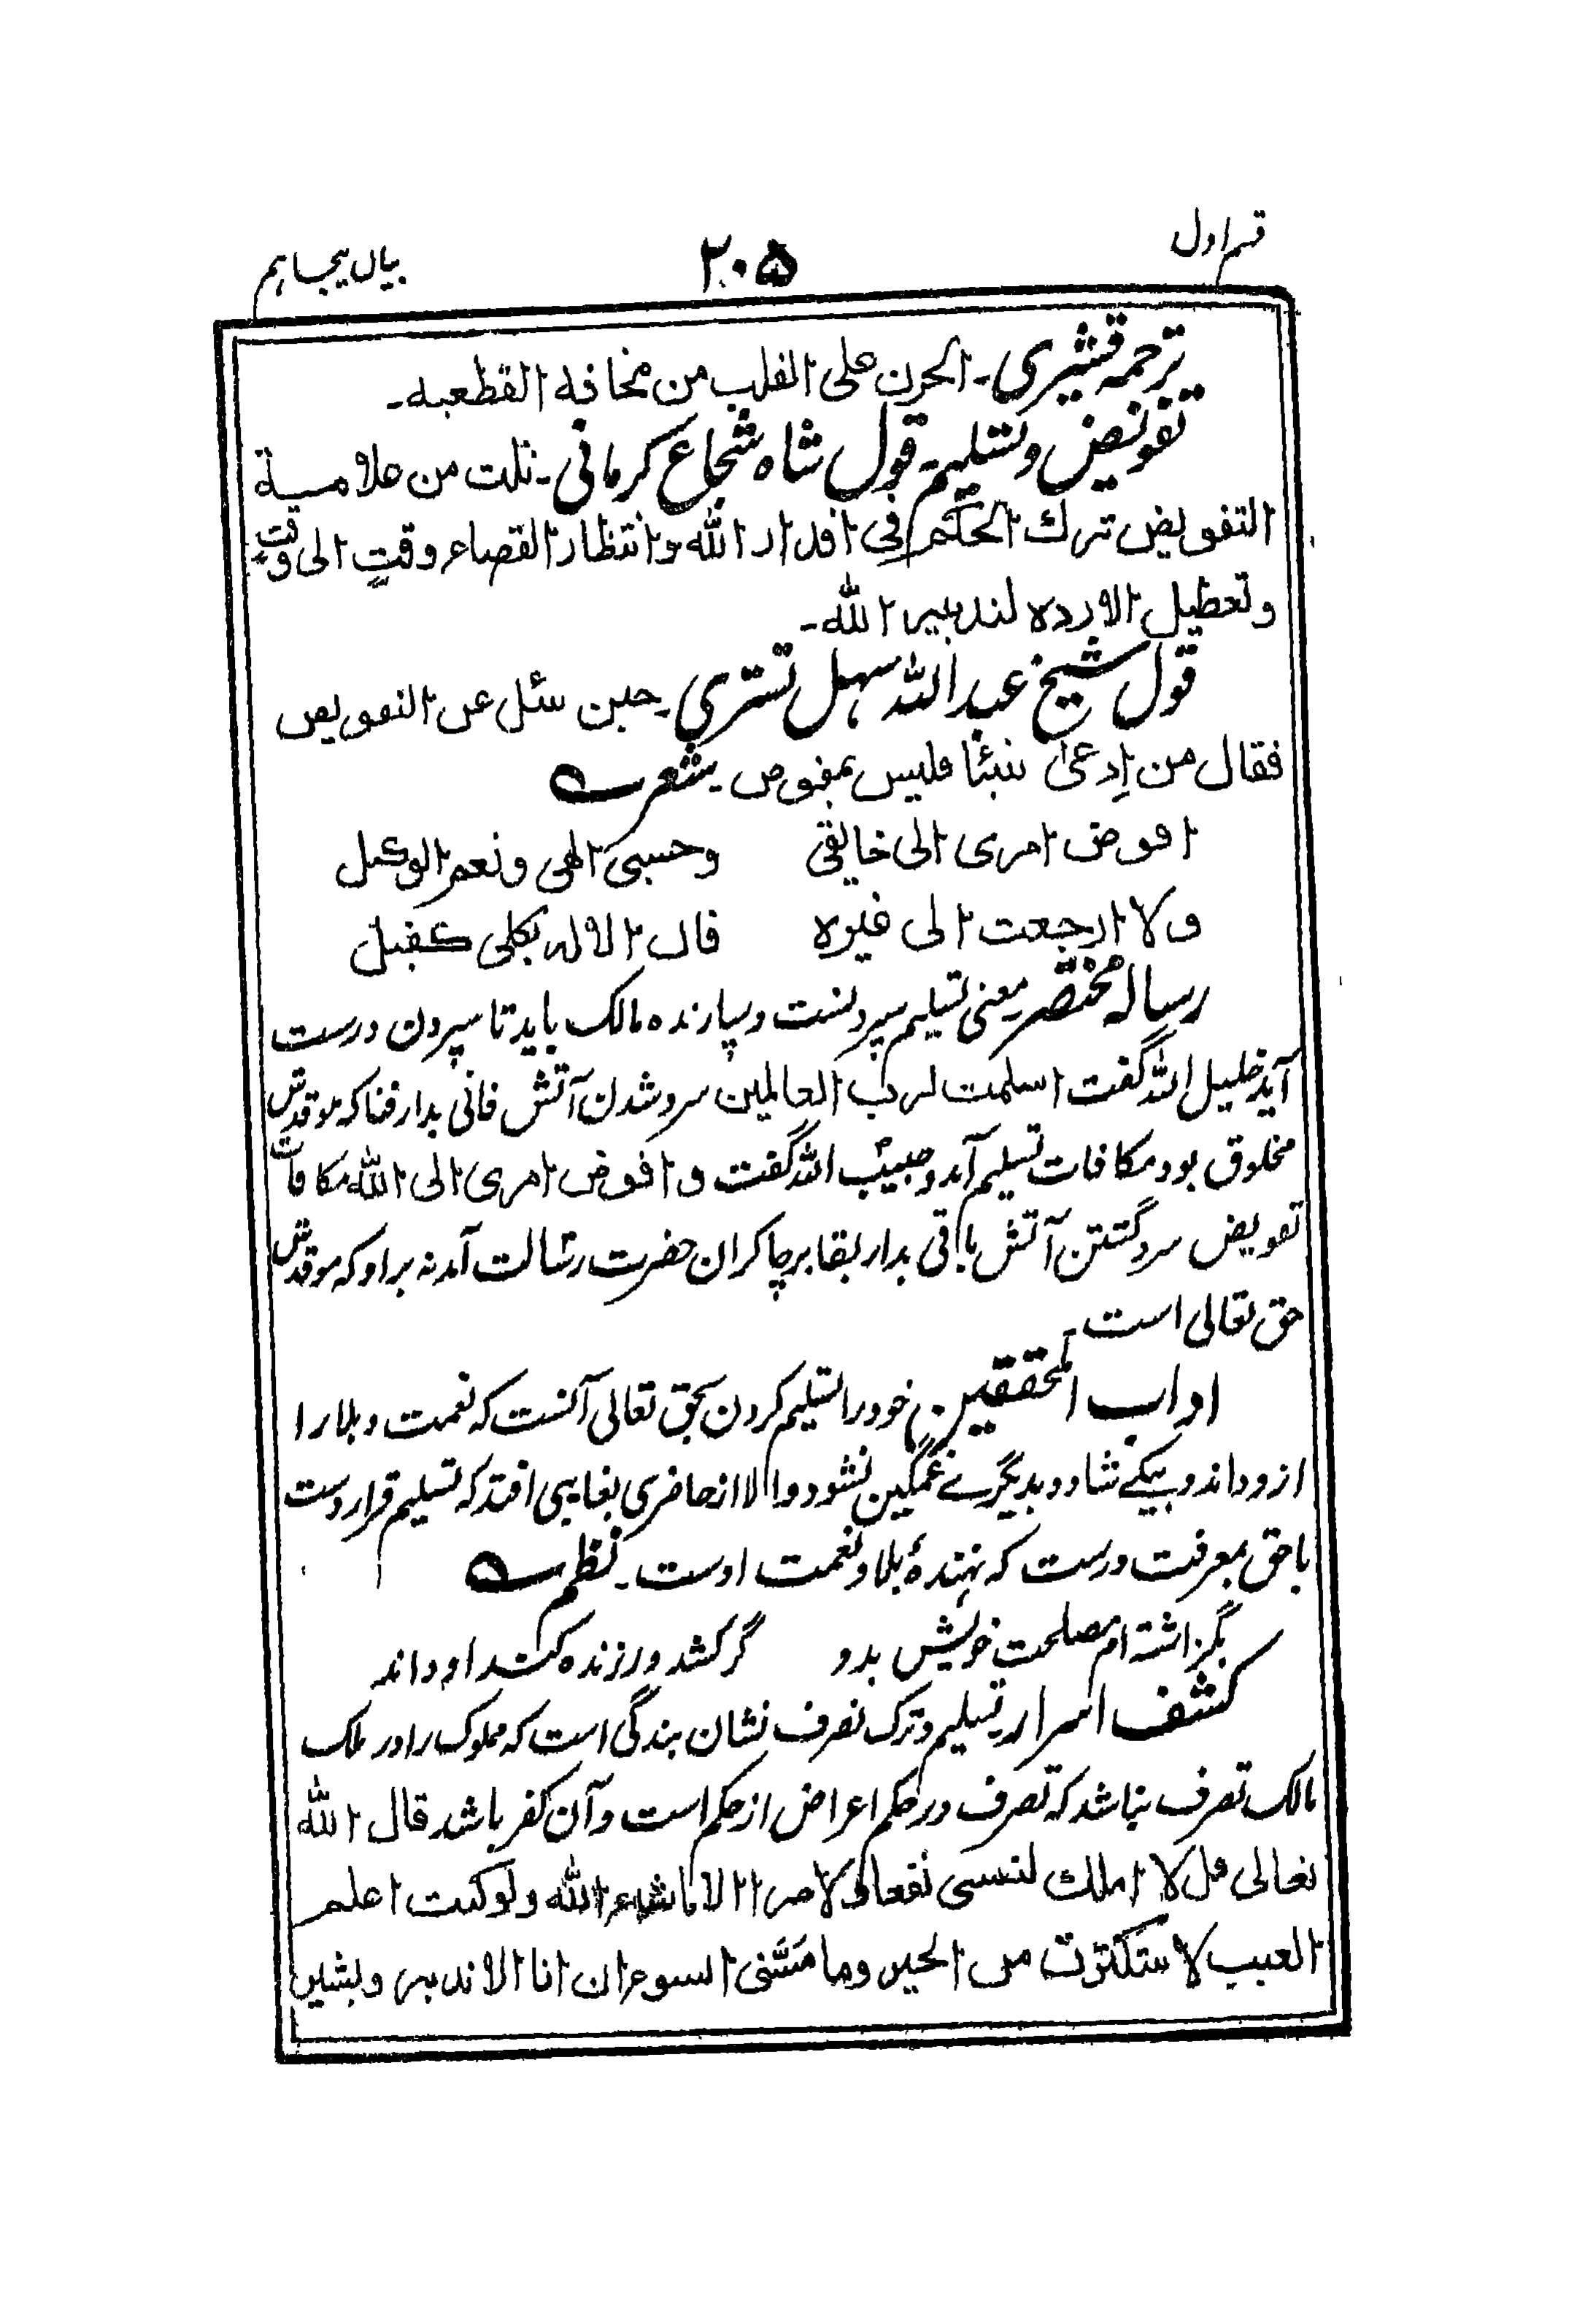 قسم اول
۲۰۵
بیان پنجاهم
ترجمه قشیری۔ الحزن علی القلب من مخافة القطعیه۔
تفویض و تسلیم۔ قول شاه شجاع کرمانی۔ ثلت من علامــة
التفویض ترك الحکم فی اقدار الله و انتظار القضاء وقتٍ الی وقتٍ
و تعطیل الارده لتدبیر الله۔
قول شیخ عبد الله سهل تستری۔ حین سئل عن التفویض
فقال من اِدعیٰ شیئا فلیس بمفوض۔ شعر
افوض امری الی خالقی وحسبی الٰهی و نعم الوکیل
و لا ارجعت الی غیره فان الاله بکلی کفیل
رساله مختصر۔ معنی تسلیم سپردنست و سپارنده مالک باید تا سپردن درست
آید خلیل الله گفت اسلمت لرب العالمین سرد شدن آتش فانی بدار فنا که موقدش
مخلوق بود مکافات تسلیم آمد و حبیب الله گفت و افوض امری الی الله مکافات
تفویض سرد گشتن آتش باقی بدار بقا بر چاکران حضرت رسالت آمد نه بر او که موقدش
حق تعالی است۔
اداب المحققین۔ خود را تسلیم کردن بحق تعالی آنست که نعمت و بلا را
ازو داند و بیکے شاد و بدیگرے غمگین نشود و الا از حاضری بغایبی افتد که تسلیم قرار دست
با حق بمعرفت درست که نهندهٔ بلا و نعمت اوست۔ نظم
بگزاشته ام مصلحت خویش بدو گر کشد ور زنده کند او داند
کشف اسرار۔ تسلیم و ترک تصرف نشان بندگی است که مملوک را در ملک
مالک تصرف نباشد که تصرف در حکم اعراض از حکم است و آن کفر باشد قال الله
تعالی قل لا املك لنفسی نفعا و لا ضرا الا ما شاء الله و لو کنت اعلم
الغیب لا ستکثرت من الخیر وما مَسَّنی السوء ان انا الا نذیر و بشیر